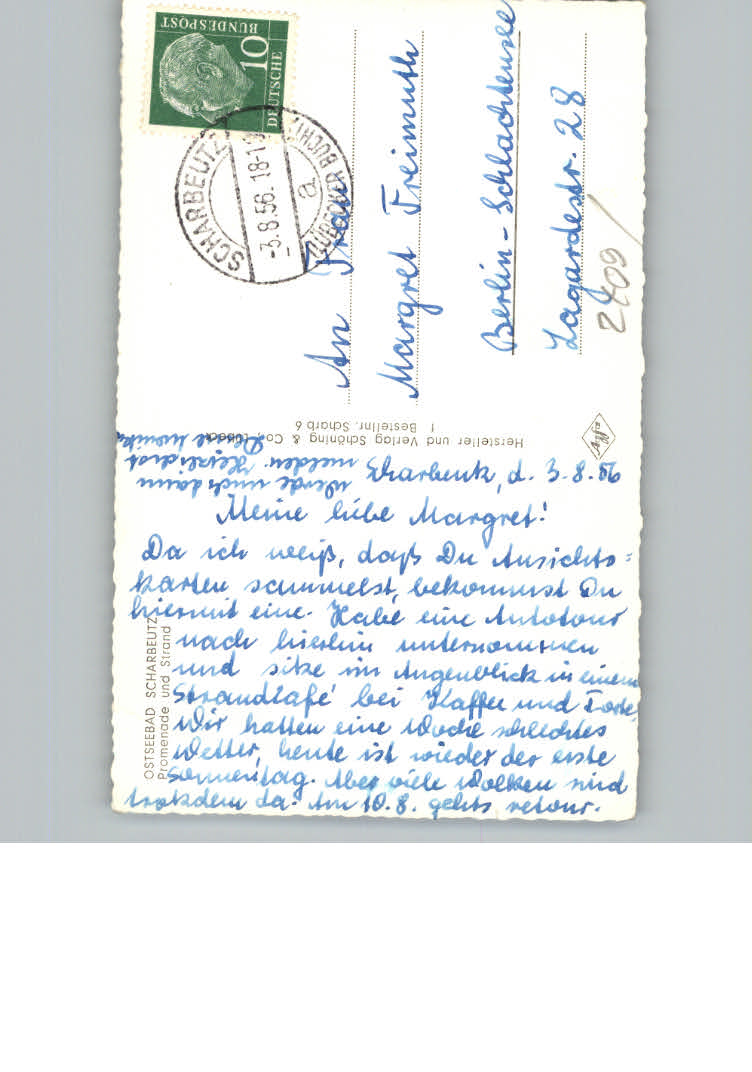 Scharbeutz, d. 3.8.56
Meine liebe Margret!
Da ich weiß, daß Du Ansichts=
karten sammelst, bekommst Du
hiermit eine. Habe eine Autotour
nach hierhin unternommen
und sitze im Augenblick in einem
Strandkafé bei Kaffee und Torte.
Wir hatten eine Woche schlechtes
Wetter, heute ist wieder der erste
Sonnentag. Aber viele Wolken sind
trotzdem da. Am 10.8. gehts retour.
Werde mich dann
melden. Herzlichst
Deine
An Frau
Margret Freimuth
Berlin-Schlachtensee
Lagardestr. 28
2409/
OSTSEEBAD SCHARBEUTZ
Promenade und Strand
Hersteller und Verlag Schöning & Co., Lübeck
1 Bestellnr. Scharb 6
DEUTSCHE
BUNDESPOST
10
SCHARBEUTZ
-3.8.56.18-1
a
(LÜBECKER BUCHT)